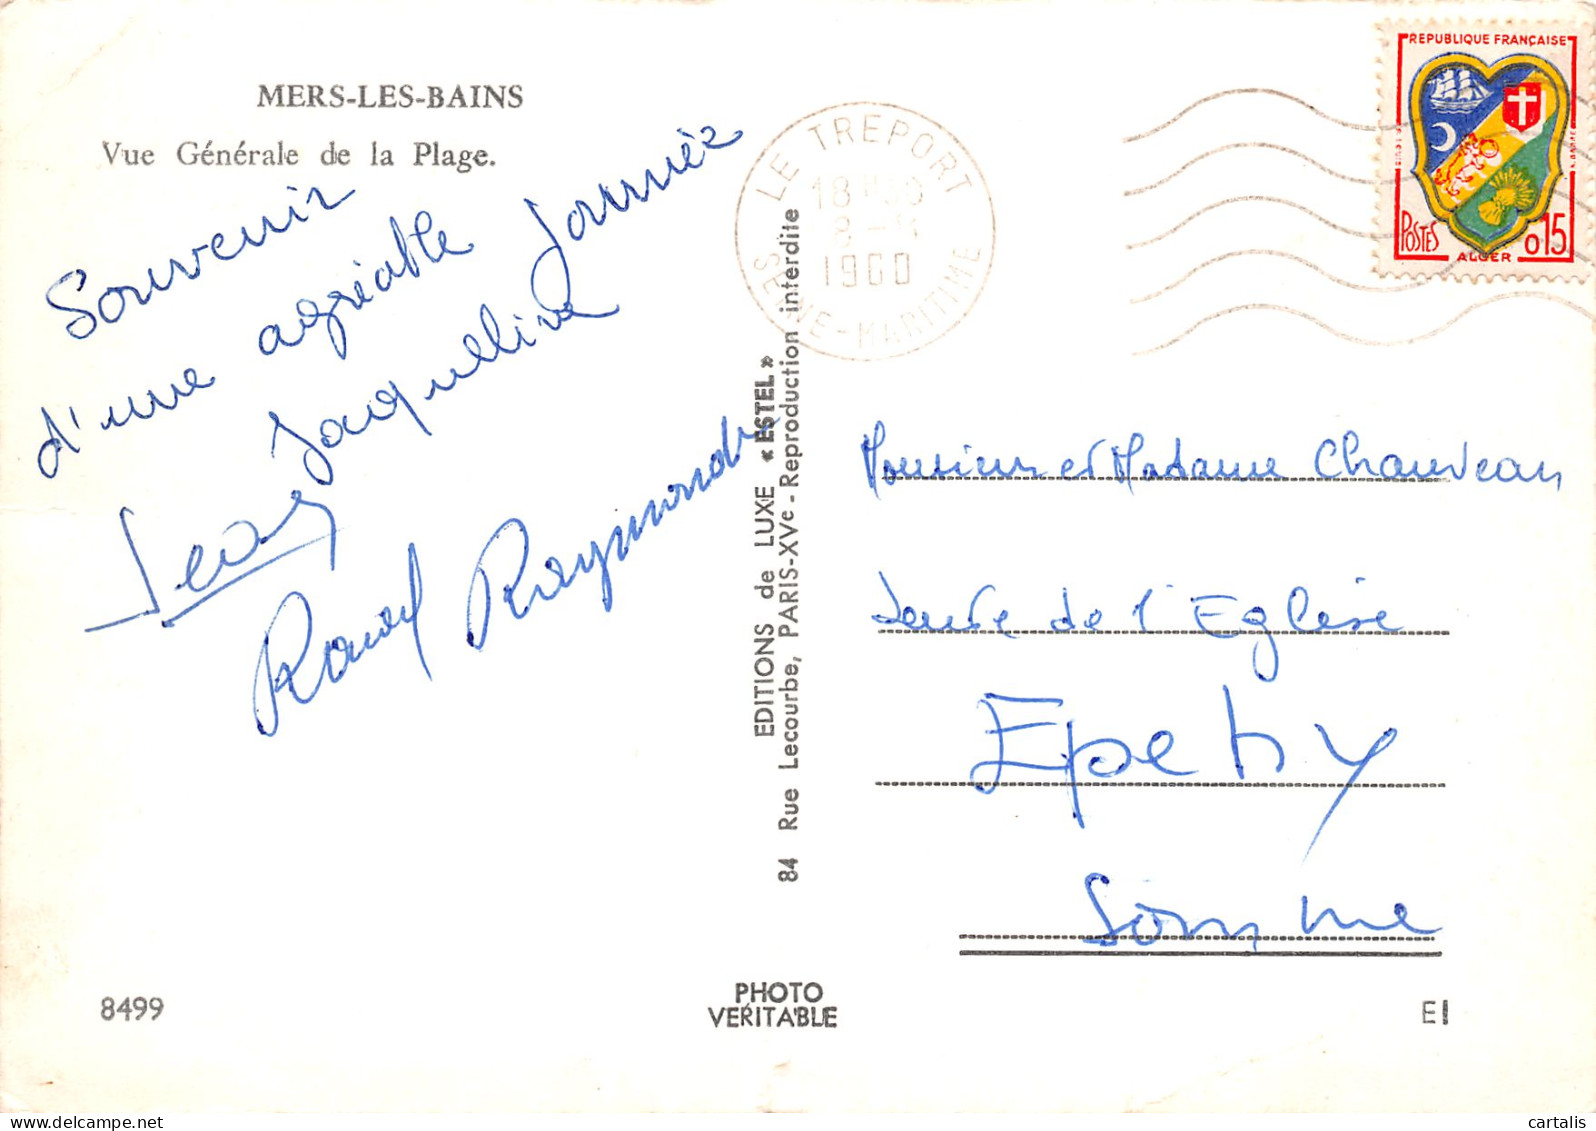 MERS-LES-BAINS
Vue Générale de la Plage.
Souvenir
d'une agréable journée
Jacqueline
Jean
Raoul Raymonde
EDITIONS de LUXE « ESTEL »
84 Rue Lecourbe, PARIS-XVe - Reproduction interdite
LE TREPORT
18
8-
1960
SEINE-MARITIME
REPUBLIQUE FRANÇAISE
POSTES
0,15
ALGER
Monsieur et Madame Chauveau
de l'Eglise
Epehy
Somme
8499
PHOTO
VERITABLE
E!
delcampe.net
cartalis